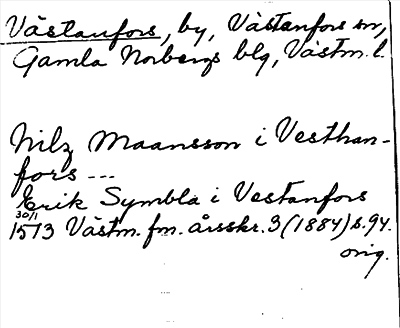 Västanfors, by, Västanfors sn,
Gamla Norbergs blg, Västm. l.
Nilz Maansson i Vesthan-
fors ---
Erik Symbla i Vestanfors
30/1
1513 Västm. fm. årsskr. 3 (1884) s. 94.
orig.